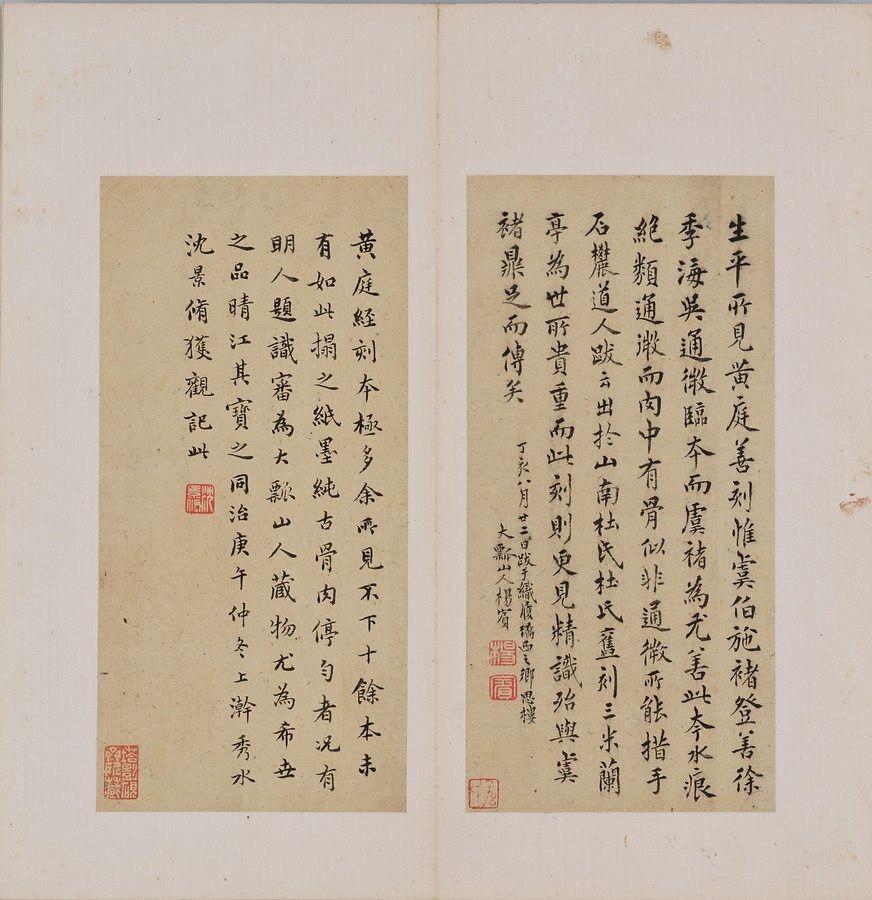 生平所見黃庭善刻惟虞伯施褚登善徐
季海吳通微臨本而虞褚為尤善此本水痕
絕類通微而肉中有骨似非通微所能措手
石麟道人跋云出於山南杜氏杜氏舊刻三米蘭
亭為世所貴重而此刻則更見精識殆與虞
褚鼎足而傳矣
丁亥八月廿二日跋于織履橋西之鄉思樓
大瓢山人楊賓
黃庭經刻本極多余所見不下十餘本未
有如此搨之紙墨純古骨肉停勻者況有
明人題識審為大瓢山人藏物尤為希世
之品晴江其寶之同治庚午仲冬上澣秀水
沈景脩獲觀記此